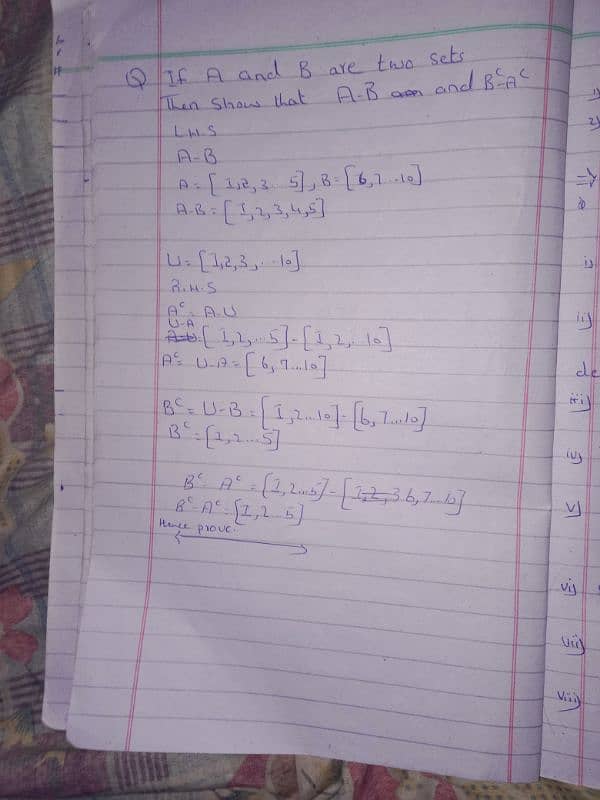 Q If A and B are two sets
Then show that A-B and B^c-A^c
L.H.S
A-B
A = [1,2,3... 5], B = [6,7...10]
A-B = [1,2,3,4,5]
U = [1,2,3,...10]
R.H.S
A^c = A-U
U-A
[1,2,...5]-[1,2,..10]
A^c = U-A = [6,7...10]
B^c = U-B = [1,2...10]-[6,7...10]
B^c = [1,2...5]
B^c - A^c = [1,2...5]-[1,2,3 6,7...10]
B^c - A^c = [1,2..5]
Hence prove.
1)
2)
=>
i)
ii)
de
iii)
iv)
v)
vi)
vii)
viii)